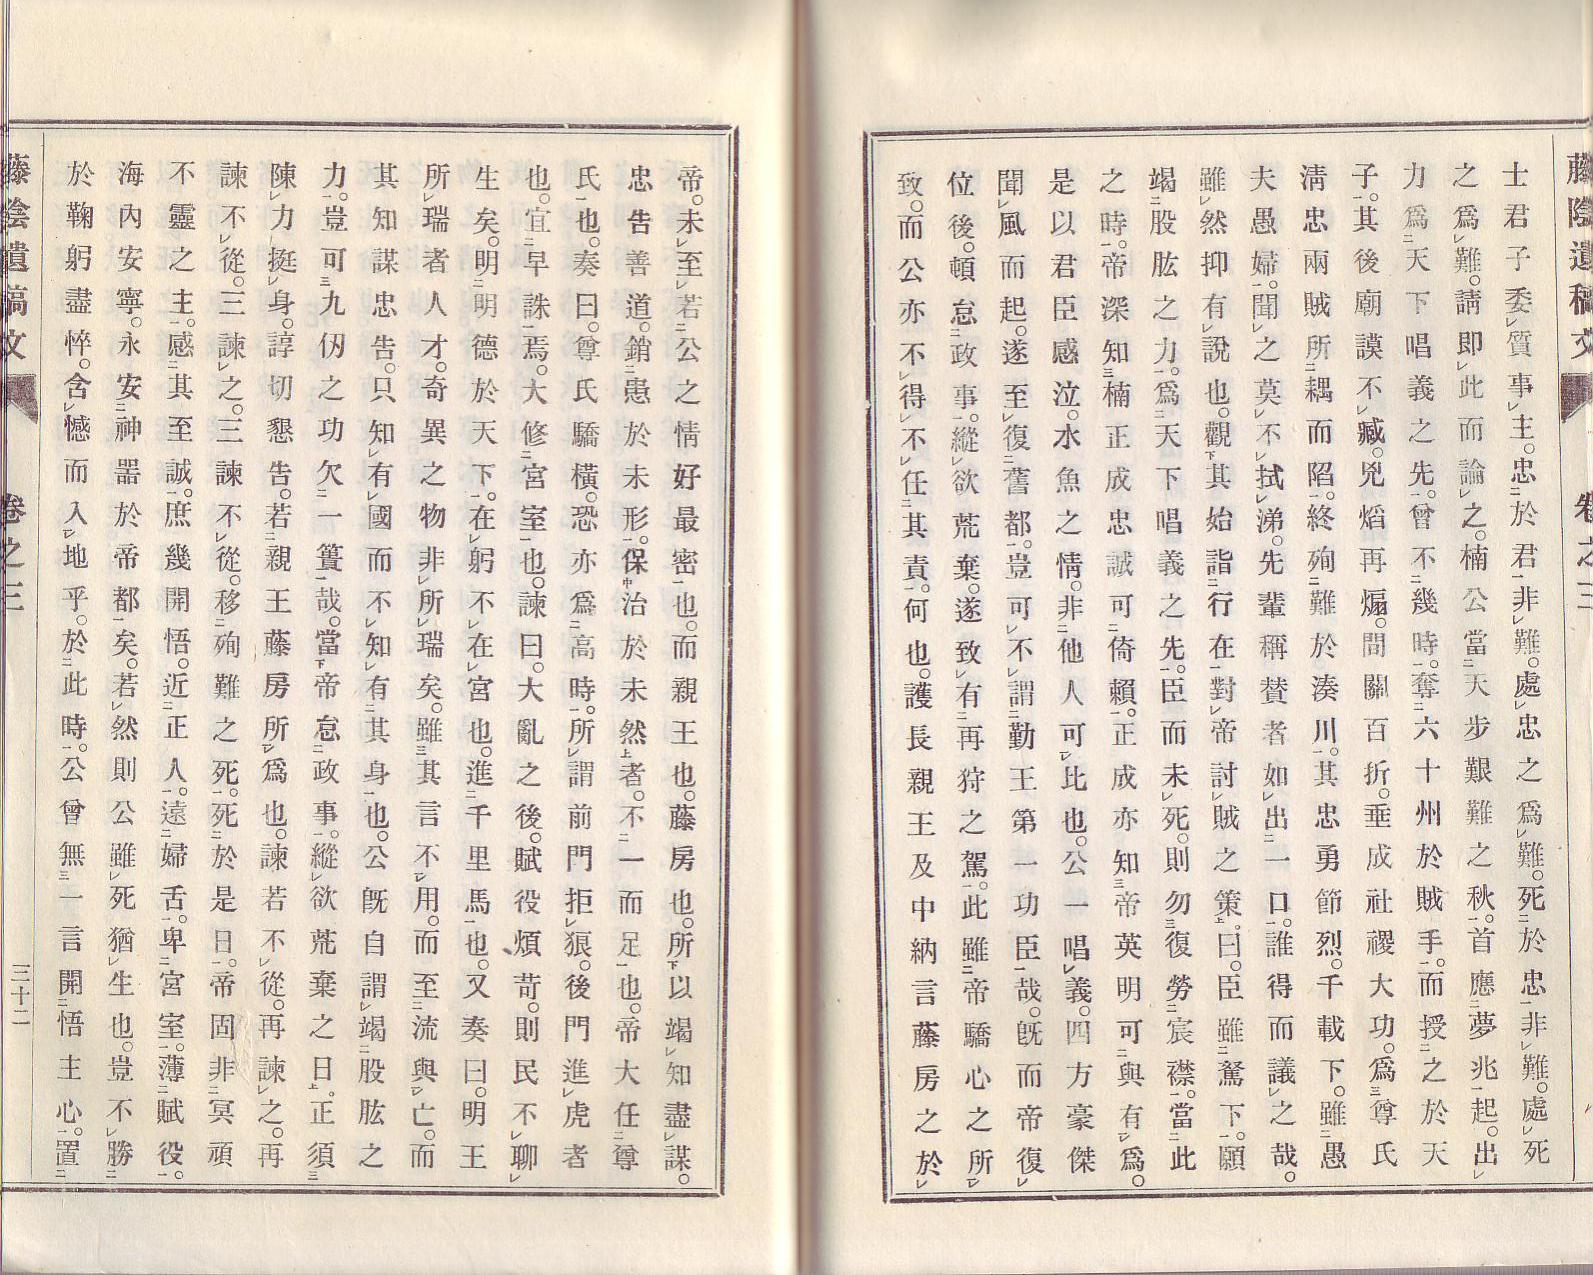 藤陰遺稿文 卷之三
士君子委質事主。忠於君非難。處忠之爲難。死於忠非難。處死
之爲難。請即此而論之。楠公當天步艱難之秋。首應夢兆起。出
力爲天下唱義之先。曾不幾時。奪六十州於賊手。而授之於天
子。其後廟謨不臧。兇焰再煽。間關百折。垂成社稷大功。爲尊氏
淸忠兩賊所耦而陷。終殉難於湊川。其忠勇節烈。千載下。雖愚
夫愚婦。聞之莫不拭涕。先輩稱賛者如出一口。誰得而議之哉。
雖然抑有說也。觀其始詣行在對帝討賊之策。曰。臣雖駑下。願
竭股肱之力。爲天下唱義之先。臣而未死。則勿復勞宸襟。當此
之時。帝深知楠正成忠誠可倚賴。正成亦知帝英明可與有爲。
是以君臣感泣。水魚之情。非他人可比也。公一唱義。四方豪傑
聞風而起。遂至復舊都。豈可不謂勤王第一功臣哉。旣而帝復
位後。頓怠政事。縱欲荒棄。遂致有再狩之駕。此雖帝驕心之所
致。而公亦不得不任其責。何也。護長親王及中納言藤房之於
帝。未至若公之情好最密也。而親王也。藤房也。所以竭知盡謀。
忠告善道。銷患於未形。保治於未然者。不一而足也。帝大任尊
氏也。奏曰。尊氏驕橫。恐亦爲高時。所謂前門拒狼。後門進虎者
也。宜早誅焉。大修宮室也。諫曰。大亂之後。賦役煩苛。則民不聊
生矣。明明德於天下。在躬不在宮也。進千里馬也。又奏曰。明王
所瑞者人才。奇異之物非所瑞矣。雖其言不用。而至流與亡。而
其知謀忠告。只知有國而不知有其身也。公旣自謂竭股肱之
力。豈可九仞之功欠一簣哉。當帝怠政事。縱欲荒棄之日。正須
陳力挺身。諄切懇告。若親王藤房所爲也。諫若不從。再諫之。再
諫不從。三諫之。三諫不從。移殉難之死。死於是日。帝固非冥頑
不靈之主。感其至誠。庶幾開悟。近正人。遠婦舌。卑宮室。薄賦役。
海內安寧。永安神器於帝都矣。若然則公雖死猶生也。豈不勝
於鞠躬盡悴。含憾而入地乎。於此時。公曾無一言開悟主心。置
藤陰遺稿文 卷之三 三十二